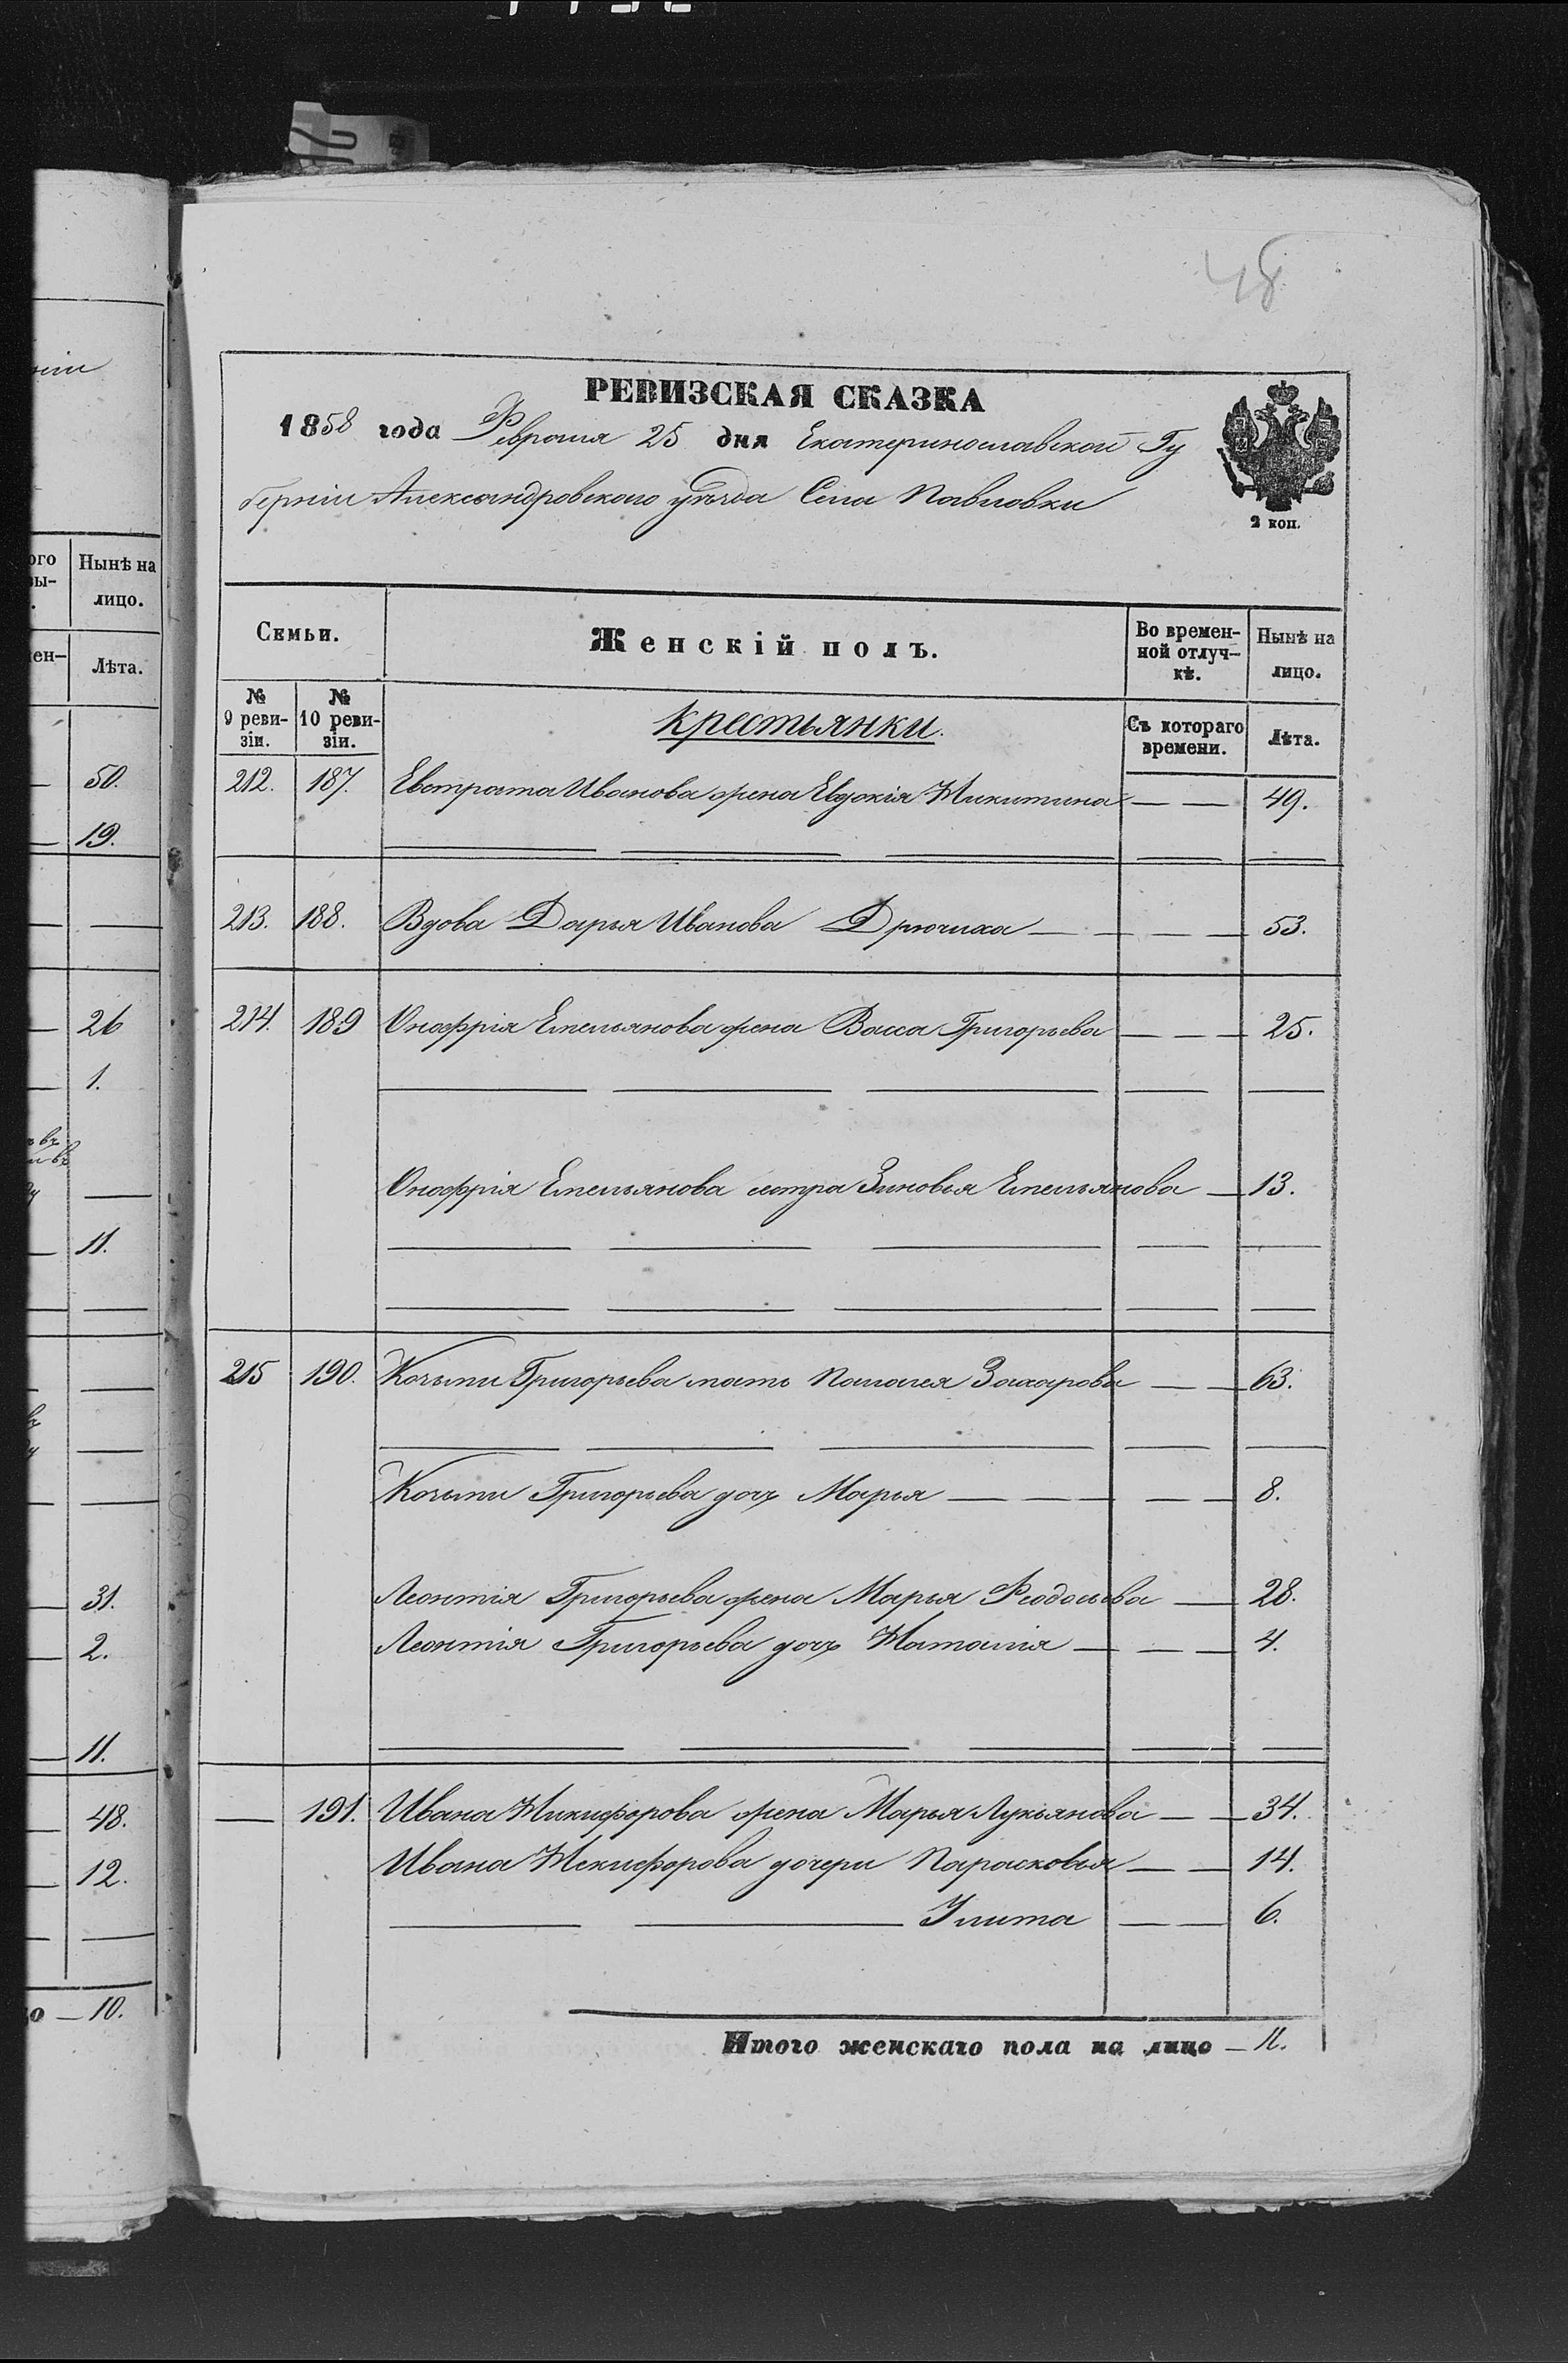 48
РЕВИЗСКАЯ СКАЗКА
1858 года Февраля 25 дня Екатеринославской Гу
берніи Александровскаго уѣзда Села Павловки
2 коп.
Семьи. Женскій полъ. Во времен- Нынѣ на
ной отлуч- лицо.
кѣ.
№ №
9 реви- 10 реви- крестьянки. Съ котораго Лѣта.
зіи. зіи. времени.
212. 187. Евстрата Иванова жена Евдокія Никитина — — 49.
213. 188. Вдова Дарья Иванова Дрючиха — — — — 53.
214. 189 Онофрія Емельянова жена Васса Григорьева — — — 25.
Онофрія Емельянова сестра Зиновья Емельянова — 13.
215 190. Козьми Григорьева мать Палагея Захарова — — 63.
Козьми Григорьева дочь Марья — — — — — 8.
Леонтія Григорьева жена Марья Феодосьева — 28.
Леонтія Григорьева дочь Наталія — — — 4.
— 191. Ивана Никифорова жена Марья Лукьянова — — 34.
Ивана Некифорова дочери Парасковья — — 14.
— — Улита — — 6.
Итого женскаго пола на лицо — 11.
ніи
ого Нынѣ на
вы- лицо.
ен- Лѣта.
— 50.
— 19.
— —
— 26
— 1.
— 11.
— 31.
— 2.
— 11.
— 48.
— 12.
о — 10.